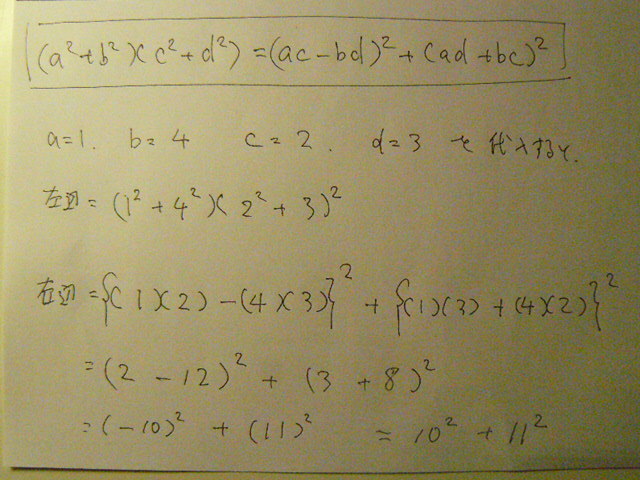 (a²+b²)(c²+d²)=(ac-bd)²+(ad+bc)²
a=1. b=4 c=2. d=3 を代入すると.
左辺=(1²+4²)(2²+3)²
右辺={(1)(2)-(4)(3)}²+{(1)(3)+(4)(2)}²
=(2-12)²+(3+8)²
=(-10)²+(11)² =10²+11²